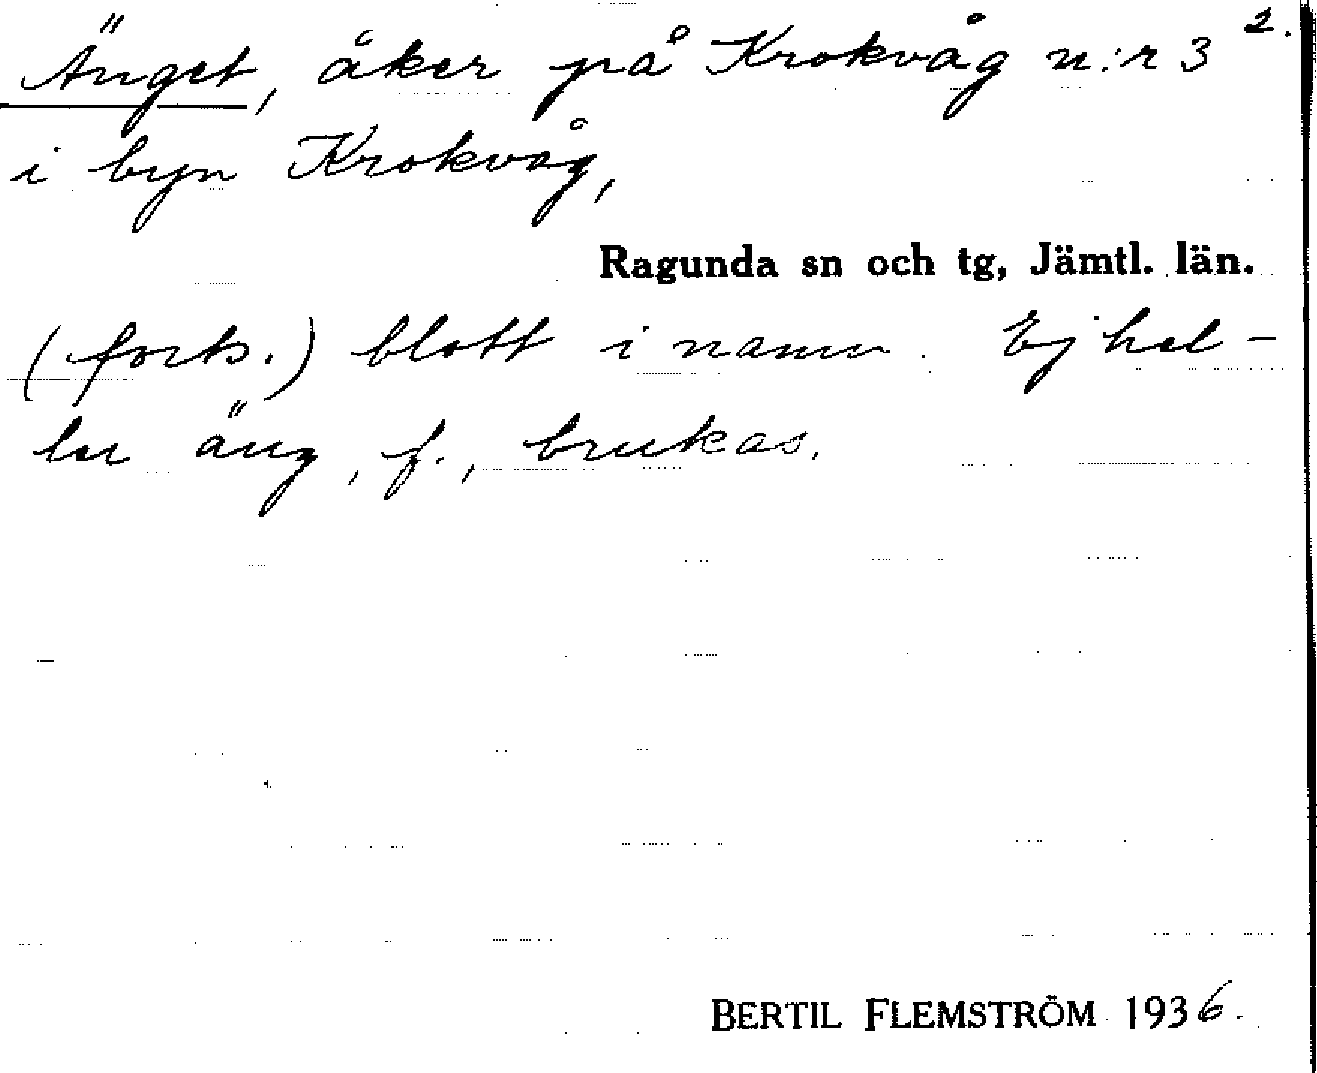 2.
Änget, åker på Krokvåg n:r 3
i byn Krokvåg,
Ragunda sn och tg, Jämtl. län.
(forts.) blott i namn. Ej hel-
ler äng, f., brukas.
BERTIL FLEMSTRÖM 1936.